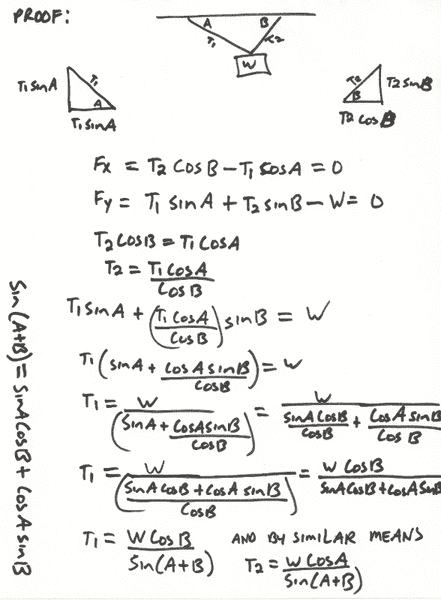 PROOF:
A B
T1 T2
W
T1 sinA T1 A
T1 sinA
T2 B T2 sinB
T2 cosB
Fx = T2 cosB − T1 cosA = 0
Fy = T1 sinA + T2 sinB − W = 0
T2 cosB = T1 cosA
T2 = T1 cosA / cosB
T1 sinA + (T1 cosA / cosB) sinB = W
T1 (sinA + cosA sinB / cosB) = W
T1 = W / (sinA + cosA sinB / cosB) = W / (sinA cosB / cosB + cosA sinB / cosB)
T1 = W / ((sinA cosB + cosA sinB) / cosB) = W cosB / (sinA cosB + cosA sinB)
T1 = W cosB / sin(A+B) AND BY SIMILAR MEANS
T2 = W cosA / sin(A+B)
sin(A+B) = sinA cosB + cosA sinB